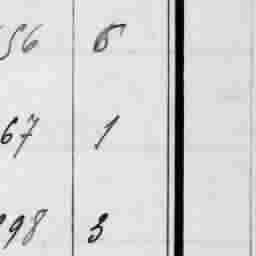 56 5
67 1
98 3